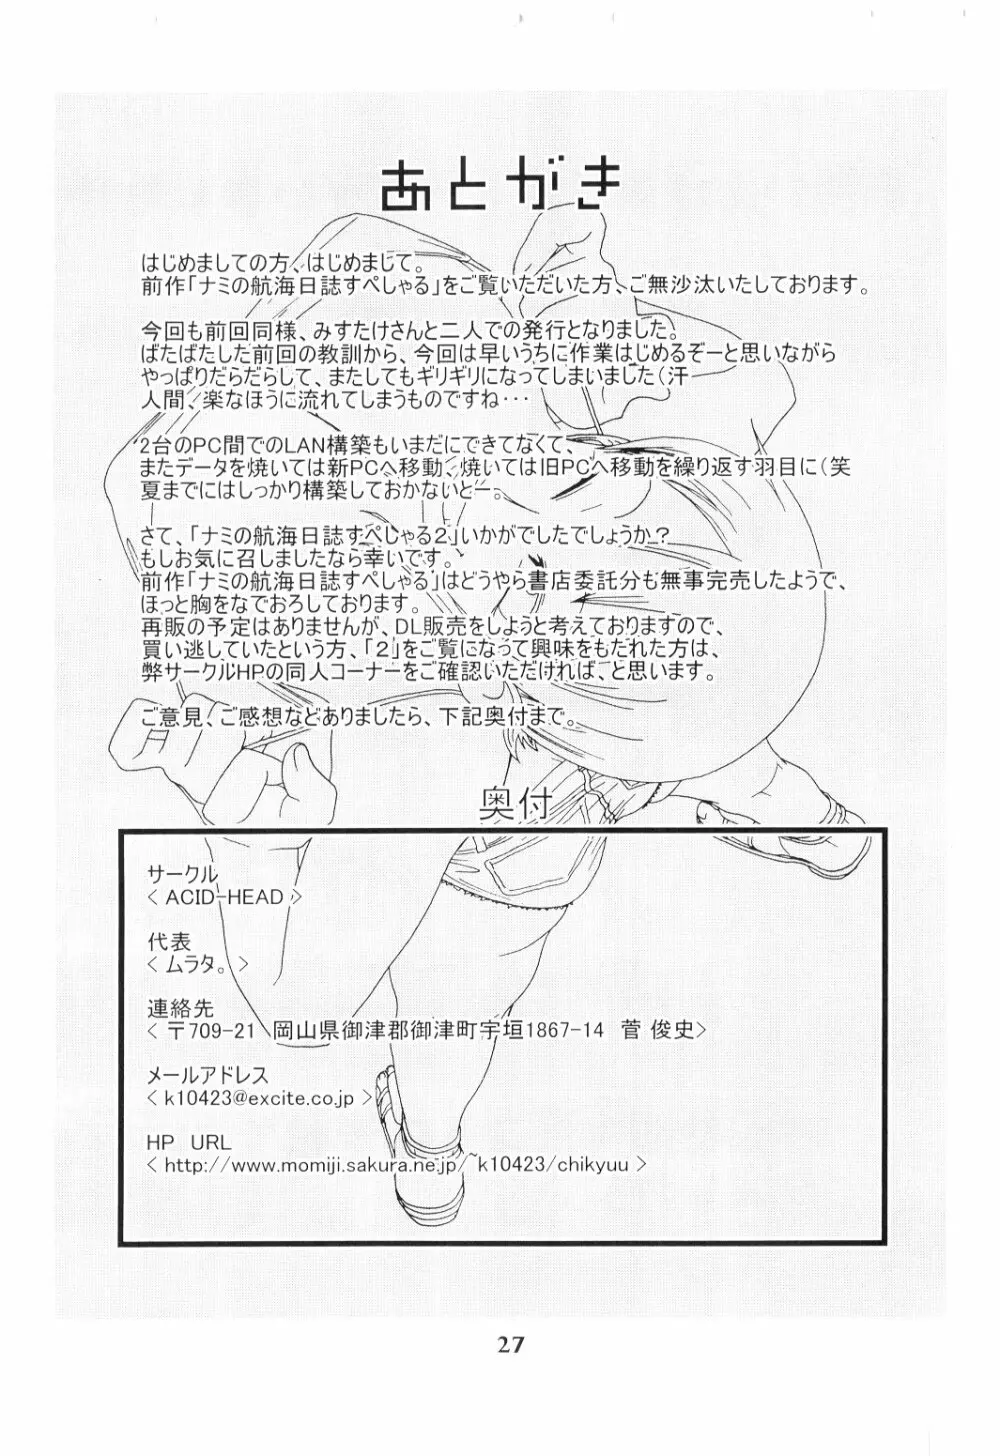 あとがき
はじめましての方、はじめまして。
前作「ナミの航海日誌すぺしゃる」をご覧いただいた方、ご無沙汰いたしております。
今回も前回同様、みすたけさんと二人での発行となりました。
ばたばたした前回の教訓から、今回は早いうちに作業はじめるぞーと思いながら
やっぱりだらだらして、またしてもギリギリになってしまいました（汗
人間、楽なほうに流れてしまうものですね・・・
2台のPC間でのLAN構築もいまだにできてなくて、
またデータを焼いては新PCへ移動、焼いては旧PCへ移動を繰り返す羽目に（笑
夏までにはしっかり構築しておかないとー。
さて、「ナミの航海日誌すぺしゃる２」いかがでしたでしょうか？
もしお気に召しましたなら幸いです。
前作「ナミの航海日誌すぺしゃる」はどうやら書店委託分も無事完売したようで、
ほっと胸をなでおろしております。
再販の予定はありませんが、DL販売をしようと考えておりますので、
買い逃していたという方、「２」をご覧になって興味をもたれた方は、
弊サークルHPの同人コーナーをご確認いただければ、と思います。
ご意見、ご感想などありましたら、下記奥付まで。
奥付
サークル
< ACID-HEAD >
代表
< ムラタ。 >
連絡先
< 〒709-21　岡山県御津郡御津町宇垣1867-14　菅 俊史>
メールアドレス
< k10423@excite.co.jp >
HP　URL
< http://www.momiji.sakura.ne.jp/~k10423/chikyuu >
27